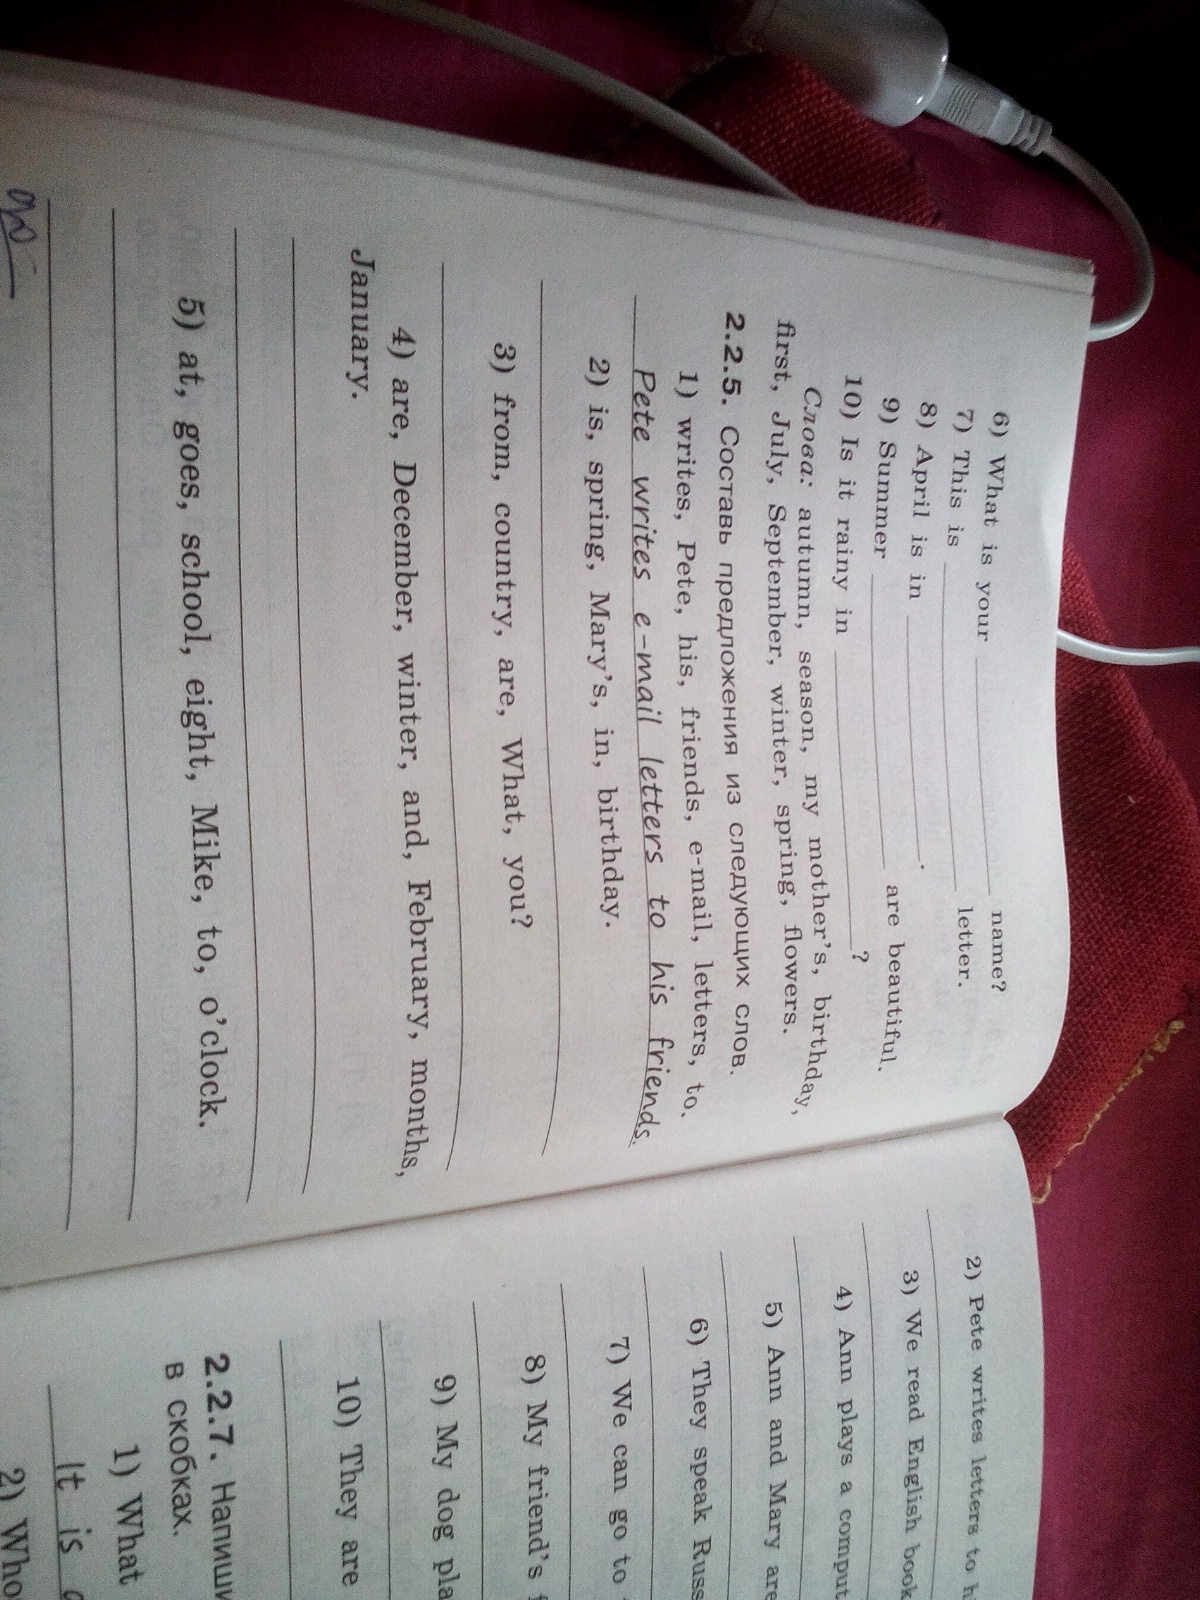 6) What is your ______ name?
7) This is ______ letter.
8) April is in ______.
9) Summer ______ are beautiful.
10) Is it rainy in ______?
Слова: autumn, season, my mother's, birthday,
first, July, September, winter, spring, flowers.
2.2.5. Составь предложения из следующих слов.
1) writes, Pete, his, friends, e-mail, letters, to.
Pete writes e-mail letters to his friends.
2) is, spring, Mary's, in, birthday.
3) from, country, are, What, you?
4) are, December, winter, and, February, months,
January.
5) at, goes, school, eight, Mike, to, o'clock.
2) Pete writes letters to
3) We read English book
4) Ann plays a comput
5) Ann and Mary are
6) They speak Russ
7) We can go to
8) My friend's
9) My dog pla
10) They are
2.2.7. Напиши
в скобках.
1) What
It is
2) Who